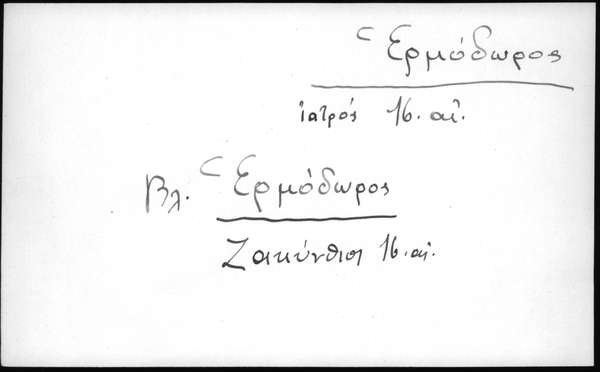 Ἑρμόδωρος
ἰατρός 16. αἰ.
Βλ. Ἑρμόδωρος
Ζακύνθιοι 16. αἰ.